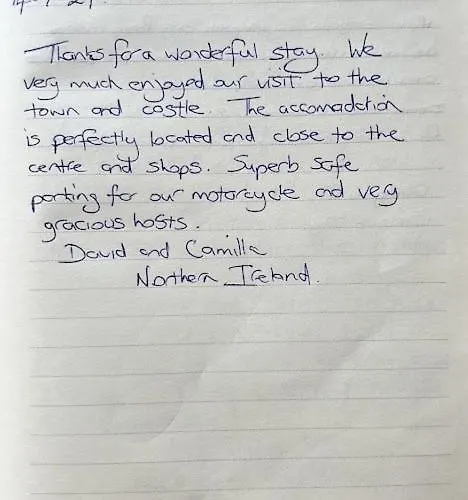 Thanks for a wonderful stay. We
very much enjoyed our visit to the
town and castle. The accomadation
is perfectly located and close to the
centre and shops. Superb safe
parking for our motorcycle and very
gracious hosts.
David and Camilla
Northern Ireland.